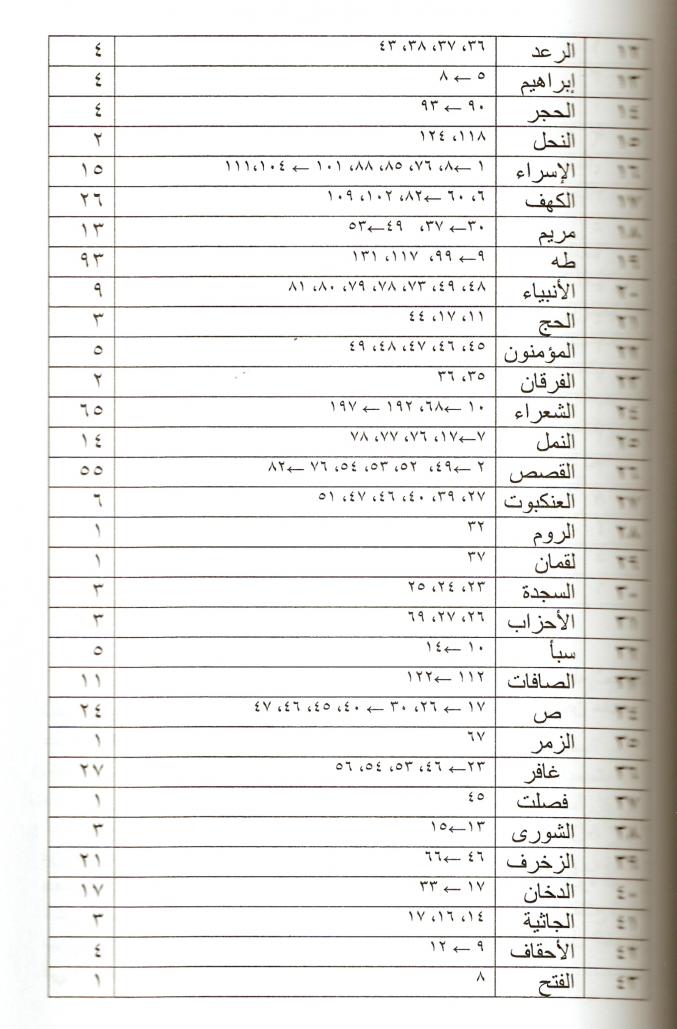 ١٢ الرعد ٣٦، ٣٧، ٣٨، ٤٣ ٤
١٣ إبراهيم ٥ ← ٨ ٤
١٤ الحجر ٩٠ ← ٩٣ ٤
١٥ النحل ١١٨، ١٢٤ ٢
١٦ الإسراء ١ ←٨، ٧٦، ٨٥، ٨٨، ١٠١ ← ١٠٤،١١١ ١٥
١٧ الكهف ٦، ٦٠ ←٨٢، ١٠٢، ١٠٩ ٢٦
١٨ مريم ٣٠← ٣٧، ٤٩←٥٣ ١٣
١٩ طه ٩← ٩٩، ١١٧، ١٣١ ٩٣
٢٠ الأنبياء ٤٨، ٤٩، ٧٣، ٧٨، ٧٩، ٨٠، ٨١ ٩
٢١ الحج ١١، ١٧، ٤٤ ٣
٢٢ المؤمنون ٤٥، ٤٦، ٤٧، ٤٨، ٤٩ ٥
٢٣ الفرقان ٣٥، ٣٦ ٢
٢٤ الشعراء ١٠ ←٦٨، ١٩٢ ← ١٩٧ ٦٥
٢٥ النمل ٧←١٧، ٧٦، ٧٧، ٧٨ ١٤
٢٦ القصص ٢ ←٤٩، ٥٢، ٥٣، ٥٤، ٧٦ ←٨٢ ٥٥
٢٧ العنكبوت ٢٧، ٣٩، ٤٠، ٤٦، ٤٧، ٥١ ٦
٢٨ الروم ٣٢ ١
٢٩ لقمان ٣٧ ١
٣٠ السجدة ٢٣، ٢٤، ٢٥ ٣
٣١ الأحزاب ٢٦، ٢٧، ٦٩ ٣
٣٢ سبأ ١٠ ←١٤ ٥
٣٣ الصافات ١١٢ ←١٢٢ ١١
٣٤ ص ١٧ ← ٢٦، ٣٠ ← ٤٠، ٤٥، ٤٦، ٤٧ ٢٤
٣٥ الزمر ٦٧ ١
٣٦ غافر ٢٣← ٤٦، ٥٣، ٥٤، ٥٦ ٢٧
٣٧ فصلت ٤٥ ١
٣٨ الشورى ١٣←١٥ ٣
٣٩ الزخرف ٤٦ ←٦٦ ٢١
٤٠ الدخان ١٧ ← ٣٣ ١٧
٤١ الجاثية ١٤، ١٦، ١٧ ٣
٤٢ الأحقاف ٩ ← ١٢ ٤
٤٣ الفتح ٨ ١